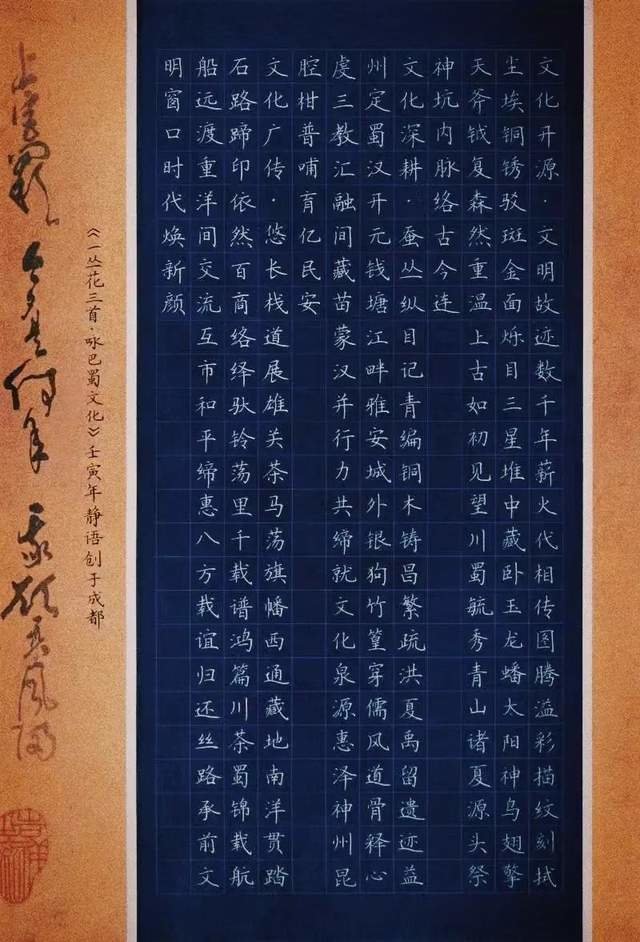 文化开源·文明故迹数千年薪火代相传图腾溢彩描纹刻拭
尘埃铜锈驳斑金面烁目三星堆中藏卧玉龙蟠大阳神鸟翅擎
天斧钺复森然重温上古如初见望川蜀毓秀青山诸夏源头祭
神坑内脉络古今连
文化深耕·蚕丛纵目记青编铜木铸昌繁疏洪夏禹留遗迹益
州定蜀汉开元钱塘江畔雅安城外银狗竹篁穿儒风道骨释心
虔三教汇融间藏苗蒙汉并行力共缔就文化泉源惠泽神州昆
腔柑普哺育亿民安
文化广传·悠长栈道展雄关茶马荡旗幡西通藏地南洋贯踏
石路蹄印依然百商络绎驮铃荡里千载谱鸿篇川茶蜀锦载航
船远渡重洋间交流互市和平缔惠八方载谊归还丝路承前文
明窗口时代焕新颜
《一丛花三首·咏巴蜀文化》壬寅年静语创于成都